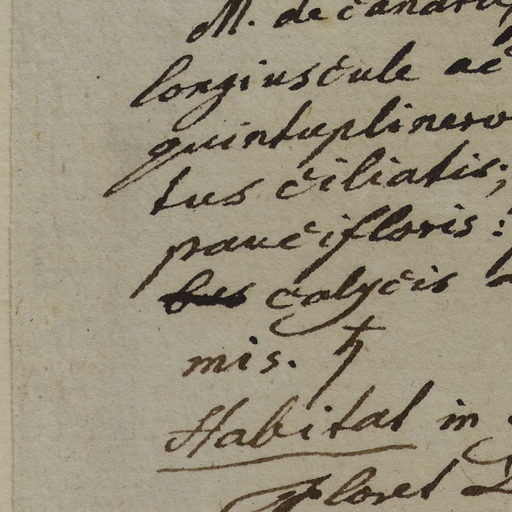 M. de candra
longiuscule ac
quintuplinero
tus ciliatis;
paucifloris:
bus calycis
mis. ♄
Habitat in
Floret